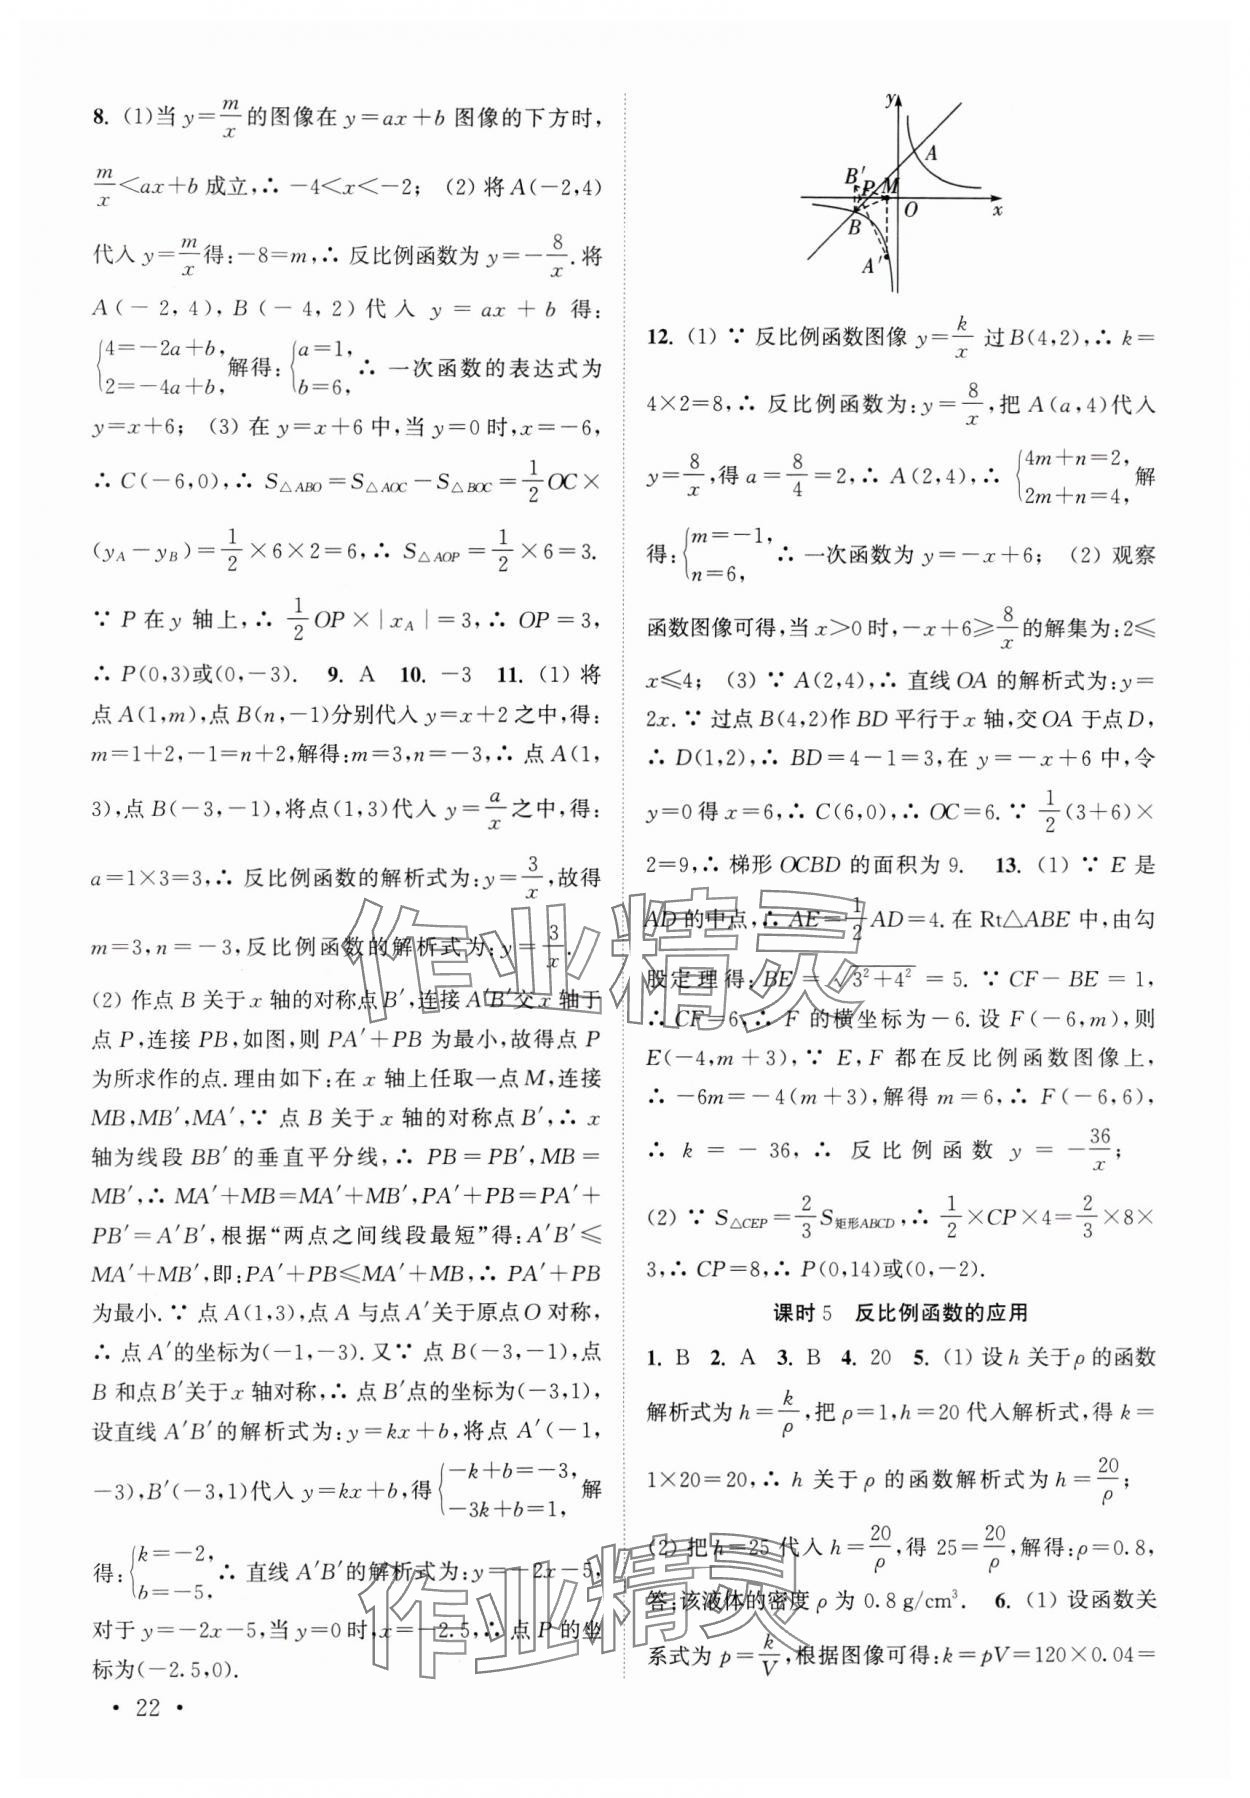 8. (1)当 y=m/x 的图像在 y=ax+b 图像的下方时,
m/x<ax+b 成立,∴ -4<x<-2; (2) 将 A(-2,4)
代入 y=m/x 得:-8=m,∴ 反比例函数为 y=-8/x.将
A(-2,4),B(-4,2)代入 y=ax+b 得:
{4=-2a+b, 2=-4a+b, 解得:{a=1, b=6, ∴ 一次函数的表达式为
y=x+6; (3) 在 y=x+6 中,当 y=0 时,x=-6,
∴ C(-6,0),∴ S△ABO=S△AOC-S△BOC=1/2 OC×
(yA-yB)=1/2×6×2=6,∴ S△AOP=1/2×6=3.
∵ P 在 y 轴上,∴ 1/2 OP×|xA|=3,∴ OP=3,
∴ P(0,3)或(0,-3). 9. A 10. -3 11. (1) 将
点 A(1,m),点 B(n,-1)分别代入 y=x+2 之中,得:
m=1+2,-1=n+2,解得:m=3,n=-3,∴ 点 A(1,
3),点 B(-3,-1),将点(1,3)代入 y=a/x 之中,得:
a=1×3=3,∴ 反比例函数的解析式为:y=3/x,故得
m=3,n=-3,反比例函数的解析式为:y=3/x.
(2) 作点 B 关于 x 轴的对称点 B′,连接 A′B′交 x 轴于
点 P,连接 PB,如图,则 PA′+PB 为最小,故得点 P
为所求作的点.理由如下:在 x 轴上任取一点 M,连接
MB,MB′,MA′,∵ 点 B 关于 x 轴的对称点 B′,∴ x
轴为线段 BB′的垂直平分线,∴ PB=PB′,MB=
MB′,∴ MA′+MB=MA′+MB′,PA′+PB=PA′+
PB′=A′B′,根据“两点之间线段最短”得:A′B′≤
MA′+MB′,即:PA′+PB≤MA′+MB,∴ PA′+PB
为最小.∵ 点 A(1,3),点 A 与点 A′关于原点 O 对称,
∴ 点 A′的坐标为(-1,-3).又∵ 点 B(-3,-1),点
B 和点 B′关于 x 轴对称,∴ 点 B′点的坐标为(-3,1),
设直线 A′B′的解析式为:y=kx+b,将点 A′(-1,
-3),B′(-3,1)代入 y=kx+b,得{-k+b=-3, -3k+b=1, 解
得:{k=-2, b=-5, ∴ 直线 A′B′的解析式为:y=-2x-5,
对于 y=-2x-5,当 y=0 时,x=-2.5,∴ 点 P 的坐
标为(-2.5,0).
• 22 •
y
A
B′
P
M
B
O
x
A′
12. (1) ∵ 反比例函数图像 y=k/x 过 B(4,2),∴ k=
4×2=8,∴ 反比例函数为:y=8/x,把 A(a,4)代入
y=8/x,得 a=8/4=2,∴ A(2,4),∴ {4m+n=2, 2m+n=4, 解
得:{m=-1, n=6, ∴ 一次函数为 y=-x+6; (2) 观察
函数图像可得,当 x>0 时,-x+6≥8/x的解集为:2≤
x≤4; (3) ∵ A(2,4),∴ 直线 OA 的解析式为:y=
2x.∵ 过点 B(4,2)作 BD 平行于 x 轴,交 OA 于点 D,
∴ D(1,2),∴ BD=4-1=3,在 y=-x+6 中,令
y=0 得 x=6,∴ C(6,0),∴ OC=6.∵ 1/2(3+6)×
2=9,∴ 梯形 OCBD 的面积为 9. 13. (1) ∵ E 是
AD 的中点,∴ AE=1/2 AD=4.在 Rt△ABE 中,由勾
股定理得:BE=√(3²+4²)=5.∵ CF-BE=1,
∴ CF=6,∴ F 的横坐标为-6.设 F(-6,m),则
E(-4,m+3),∵ E,F 都在反比例函数图像上,
∴ -6m=-4(m+3),解得 m=6,∴ F(-6,6),
∴ k=-36,∴ 反比例函数 y=-36/x;
(2) ∵ S△CEP=2/3 S矩形ABCD,∴ 1/2×CP×4=2/3×8×
3,∴ CP=8,∴ P(0,14)或(0,-2).
课时 5 反比例函数的应用
1. B 2. A 3. B 4. 20 5. (1) 设 h 关于ρ的函数
解析式为 h=k/ρ,把 ρ=1,h=20 代入解析式,得 k=
1×20=20,∴ h 关于 ρ 的函数解析式为 h=20/ρ;
(2) 把 h=25 代入 h=20/ρ,得 25=20/ρ,解得:ρ=0.8,
答:该液体的密度 ρ 为 0.8 g/cm³. 6. (1) 设函数关
系式为 p=k/V,根据图像可得:k=pV=120×0.04=
作业精灵
作业精灵